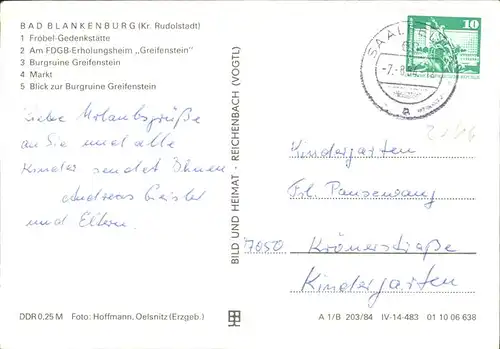 BAD BLANKENBURG (Kr. Rudolstadt)
1 Fröbel-Gedenkstätte
2 Am FDGB-Erholungsheim „Greifenstein"
3 Burgruine Greifenstein
4 Markt
5 Blick zur Burgruine Greifenstein
Liebe Urlaubsgrüße
an Sie und alle
Kinder sendet Ihnen
Andreas Geisler
und Eltern.
BILD UND HEIMAT · REICHENBACH (VOGTL)
10
SAALFELD
-7.-8.
a
Kindergarten
Frl. Pansewang
7050 Krönerstraße
Kindergarten
DDR 0,25 M Foto: Hoffmann, Oelsnitz (Erzgeb.)
A 1/B 203/84 IV-14-483 01 10 06 638